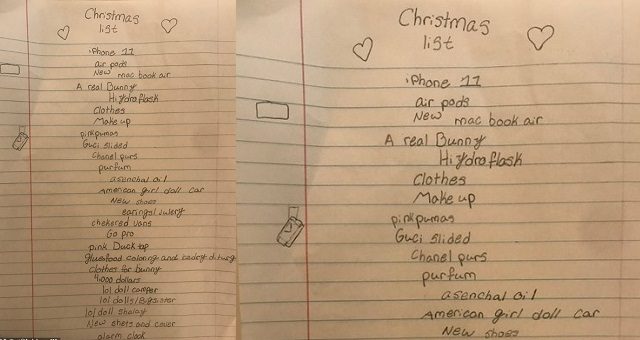 Christmas
list
iPhone 11
air pods
New mac book air
A real Bunny
Hydroflask
Clothes
Make up
pink pumas
Guci slided
Chanel purs
purfum
asenchal oil
American girl doll car
New shoes
earings/julery
chekered vans
Go pro
pink Duck tap
clothes for bunny
4,000 dollars
lol doll camper
lol dolls/
lol doll
New shets and cover
alarm clock
Christmas
list
iPhone 11
air pods
New mac book air
A real Bunny
Hydroflask
Clothes
Make up
pink pumas
Guci slided
Chanel purs
purfum
asenchal oil
American girl doll car
New shoes